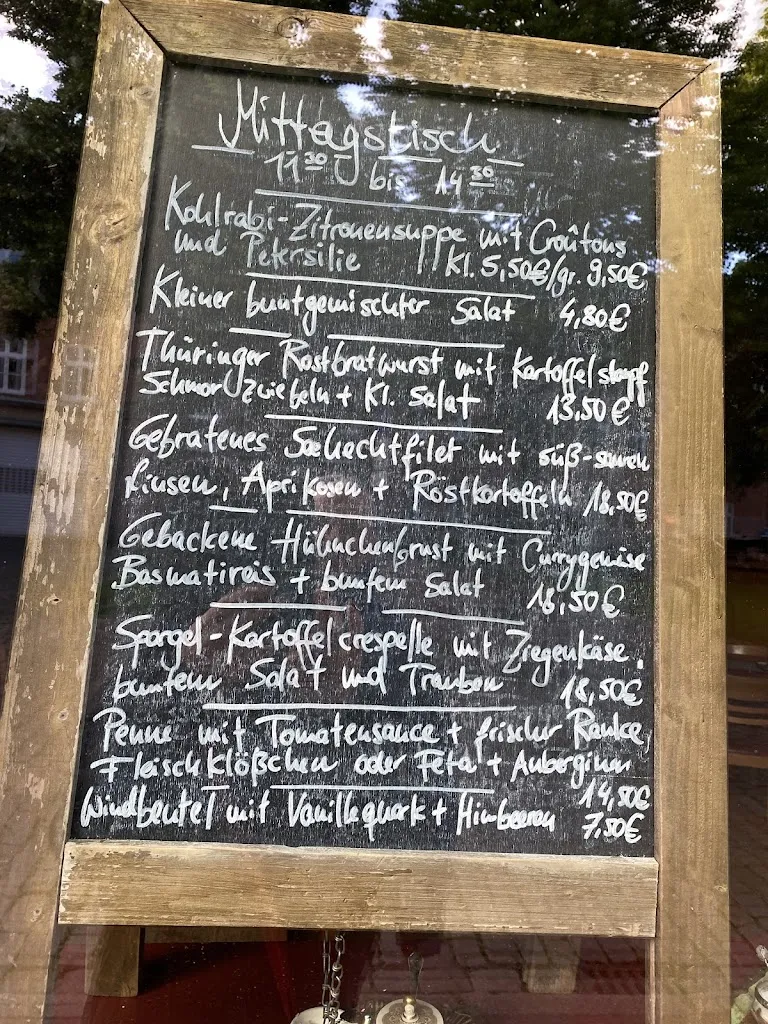 Mittagstisch
11³⁰ bis 14³⁰
Kohlrabi-Zitronensuppe mit Croûtons
und Petersilie Kl. 5,50€/gr. 9,50€
Kleiner buntgemischter Salat 4,80€
Thüringer Rostbratwurst mit Kartoffelstampf
Schmorzwiebeln + Kl. Salat 13,50€
Gebratenes Seehechtfilet mit süß-sauren
Linsen, Aprikosen + Röstkartoffeln 18,50€
Gebackene Hühnchenbrust mit Currygemüse
Basmatireis + buntem Salat 16,50€
Spargel-Kartoffelcrespelle mit Ziegenkäse,
buntem Salat und Trauben 18,50€
Penne mit Tomatensauce + frischer Rauke,
Fleischklößchen oder Feta + Auberginen
14,50€
Windbeutel mit Vanillequark + Himbeeren 7,50€